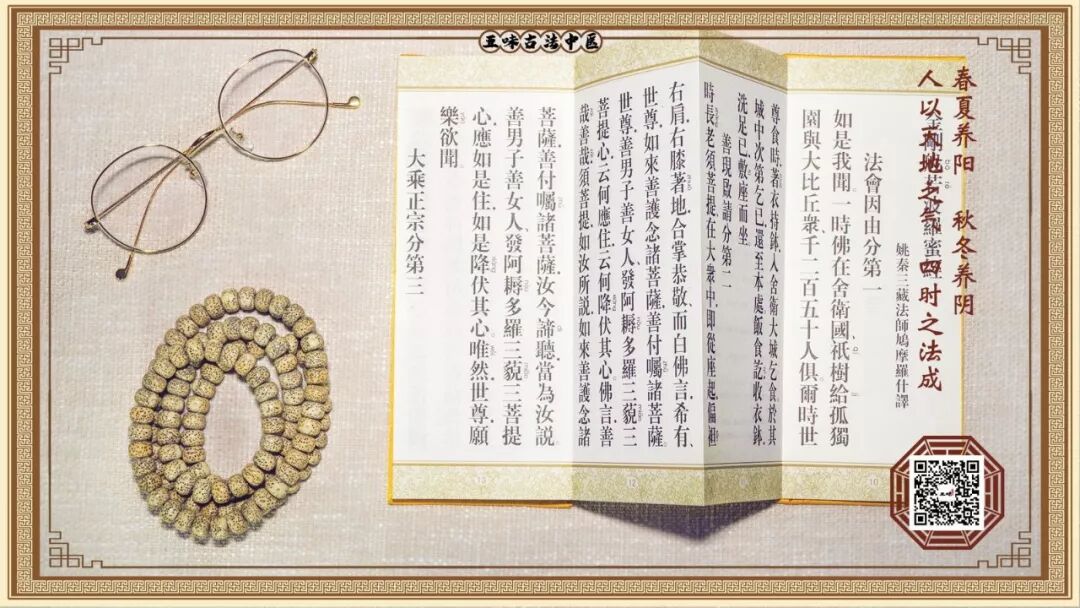 五味古法中医
春夏养阳 秋冬养阴
人以天地之气生 四时之法成
金剛般若波羅蜜經
姚秦三藏法師鳩摩羅什譯
法會因由分第一
如是我聞.一時佛在舍衛國.祇樹給孤獨
園.與大比丘衆.千二百五十人俱.爾時世
尊食時.著衣持鉢.入舍衛大城乞食.於其
城中次第乞已.還至本處.飯食訖.收衣鉢.
洗足已.敷座而坐.
善現啟請分第二
時長老須菩提.在大衆中.即從座起.偏袒
右肩.右膝著地.合掌恭敬.而白佛言.希有.
世尊.如來善護念諸菩薩.善付囑諸菩薩.
世尊.善男子善女人.發阿耨多羅三藐三
菩提心.云何應住.云何降伏其心.佛言.善
哉善哉.須菩提.如汝所說.如來善護念諸
菩薩.善付囑諸菩薩.汝今諦聽.當為汝說.
善男子善女人.發阿耨多羅三藐三菩提
心.應如是住.如是降伏其心.唯然世尊.願
樂欲聞.
大乘正宗分第三
10
12
13